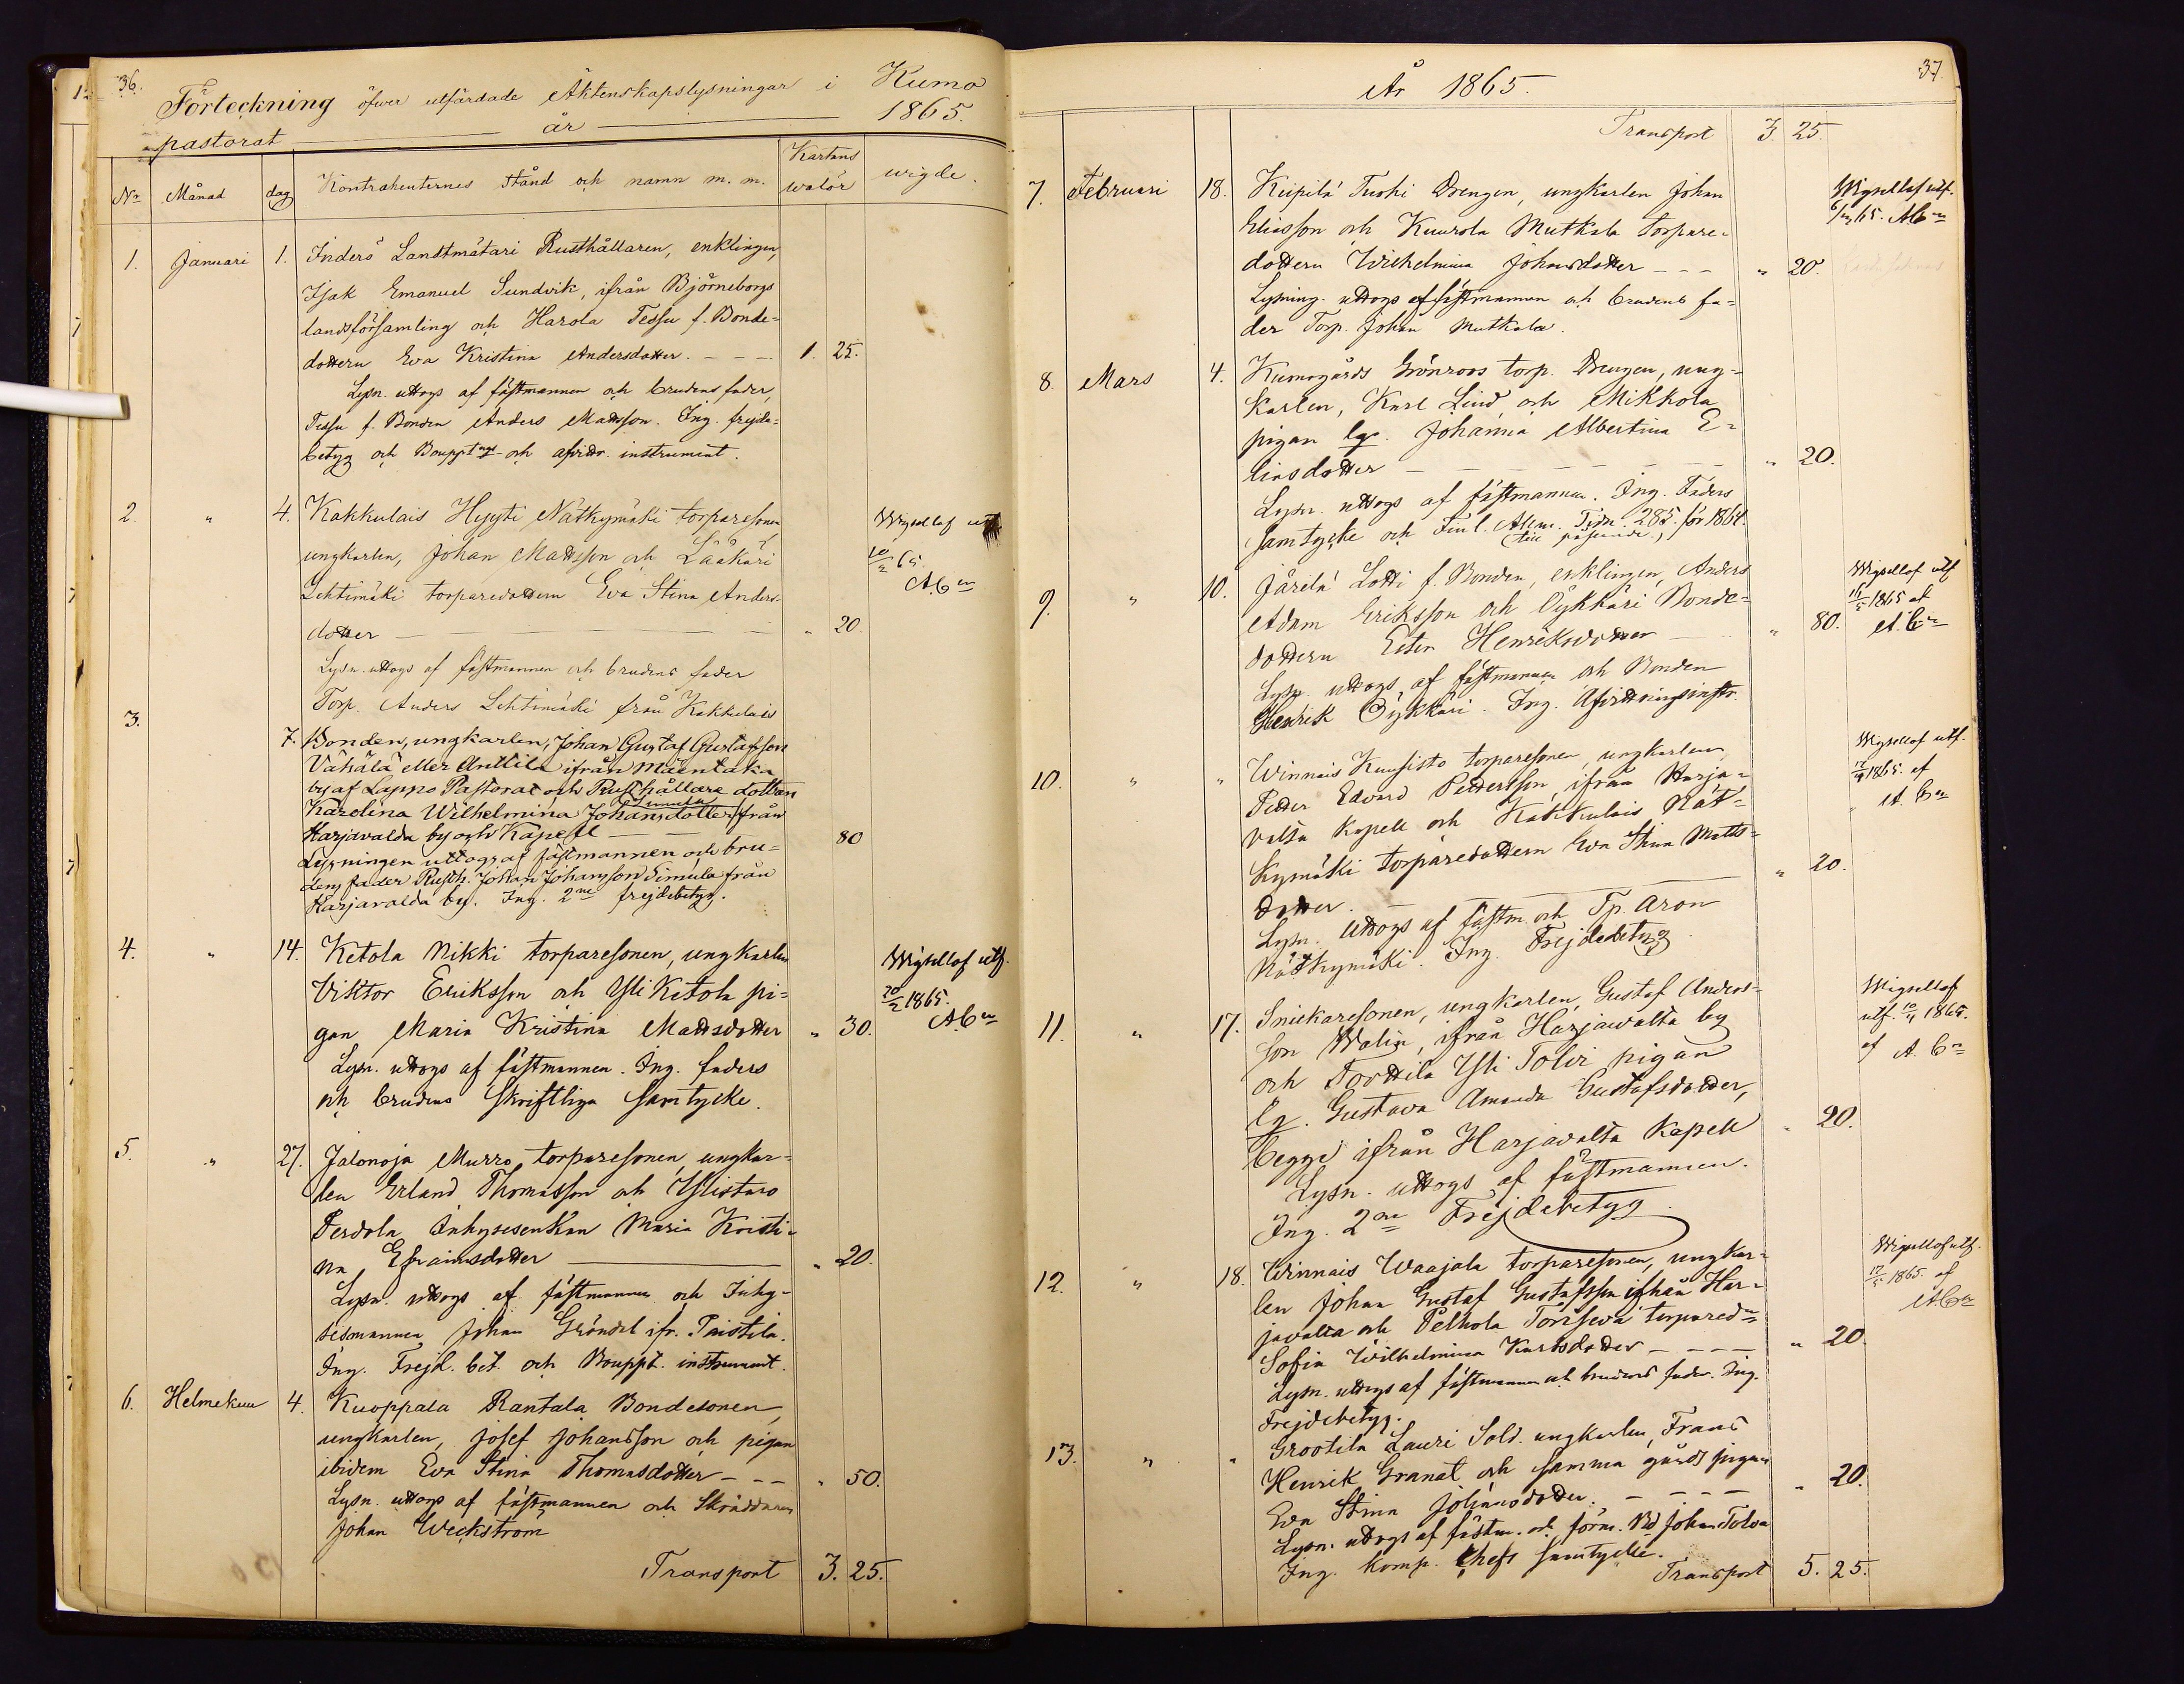 36.
Förteckning öfwer utfärdade Äktenskapslysningar i Kumo
pastorat år 1865.
No Månad dag Kontrahenternes stånd och namn m. m. Kartans walör wigde.
1. Januari 1. Inderö Landtmätari Rusthållaren, enklingen,
Isak Emanuel Sundvik, ifrån Björneborgs
landsförsamling och Harola Tessu f. Bonde=
dottern Eva Kristina Andersdotter. 1. 25.
Lysn. uttogs af fästmannen och brudens fader,
Tessu f. Bonden Anders Mattsson. Ing. frejde=
betyg och Bouppt och afvittr. instrument.
2. " 4. Kakkulais Hyyti Nätkymäki torparesonen
ungkarlen, Johan Mattsson och Lääkäri
Lehtimäki torparedottern Eva Stina Anders-
dotter " 20.
Wigsellaf utf
10/2 65.
A.Bn
Lysn. uttogs af fästmannen och brudens fader
Torp. Anders Lehtimäki från Kakkulais
3. 7. Bonden, ungkarlen, Johan Gustaf Gustafsson
Vähälä eller Anttila ifrån Mäentaka
by af Lappo Pastorat och Rusthållare dottren
Karolina Wilhelmina Johansdotter Simula från
Harjavalda by och Kapell 80
Lysningen uttogs af fästmannen och bru=
dens fader Rusth. Johan Johansson Simula från
Harjavalda by. Ing. 2ne frejdebetyg.
4. " 14. Ketola Nikki torparesonen, ungkarlen
Viktor Eriksson och Yli Ketola pi=
gan Maria Kristina Mattsdotter " 30.
Wigsellaf utf.
20/2 1865.
A.Bn
Lysn. uttogs af fästmannen. Ing. faders
och brudens skriftliga samtycke.
5. " 27. Jalonoja Murro torparesonen, ungkar=
len Erland Thomasson och Ylistaro
Perdola Inhysesenkan Maria Kristi=
na Efraimsdotter " 20.
Lysn. uttogs af fästmannen och Inhy-
sesmannen Johan Gröndal ifr. Paistila.
Ing. Frejd. bet. och Bouppt. instrument.
6. Helmekuu 4. Kuoppala Rantala Bondesonen,
ungkarlen, Josef Johansson och pigan
ibidem Eva Stina Thomasdotter " 50.
Lysn. uttogs af fästmannen och Skräddaren
Johan Weckström
Transport 3. 25.
37.
År 1865.
Transport 3. 25.
7. Februari 18. Kiipilä Tuohi Drengen, ungkarlen Johan
Eliasson och Kuurola Mutkala torpare=
dottern Wilhelmina Johansdotter " 20.
Wigsellaf utf.
65. A.Bn
Lysning. uttogs af fästmannen och brudens fa=
der Torp. Johan Mutkala.
8. Mars 4. Kumogårds Grönroos torp. Drengen, ung=
karlen, Karl Lind och Mikkola
pigan lga. Johanna Albertina E=
liasdotter " 20.
Lysn. uttogs af fästmannen. Ing. Faders
samtycke och Finl. Allm. Tidn. 285. för 1864.
9. " 10. Järelä Lotti f. Bonden, enklingen, Anders
Adam Eriksson och Öykkäri Bonde=
dottern Ester Henriksdotter " 80.
Wigsellaf utf
11/5 1865 af
A.Bn
Lysn. uttogs af fästmannen och Bonden
Henrik Öykkäri. Ing. Afvittringsinstr.
10. " " Winnais Kuusisto torparesonen, ungkarlen
Peder Edvard Pettersson, ifrån Harja=
valta Kapell och Kakkulais Nät=
kymäki torparedottern Eva Stina Matts=
dotter. " 20.
Wigsellaf utf.
17/4 1865. af
A. Bn
Lysn. uttogs af fästm. och Tp. Aron
Nätkymäki. Ing. Frejdebetyg
11. " 17. Snickaresonen, ungkarlen, Gustaf Anders=
son Walin, ifrån Harjawalta by
och Torttila Yli Tolvi pigan
lg. Gustava Amanda Gustafsdotter,
begge ifrån Harjavalta Kapell " 20.
Wigsellaf
utf. 10/4 1865.
af A. Bn
Lysn. uttogs af fästmannen.
Ing. 2ne Frejdebetyg
12. " 18. Winnais Waajala torparesonen, ungkar=
len Johan Gustaf Gustafsson ifrån Har=
javalta och Pelhola torpared
Sofia Wilhelmina Karlsdotter " 20.
Wigsellaf utf.
17/5 1865. af
A.Bn
Lysn. uttogs af fästmannen och brudens fader. Ing.
Frejdebetyg.
13. " " Grootila Lauri Sold. ungkarlen, Frans
Henrik Granat och samma gårds pigan
Eva Stina Johansdotter. " 20.
Lysn. uttogs af fästm. och förm. Bd Johan Tolva
Ing. Komp. Chefs samtycke.
Transport 5. 25.